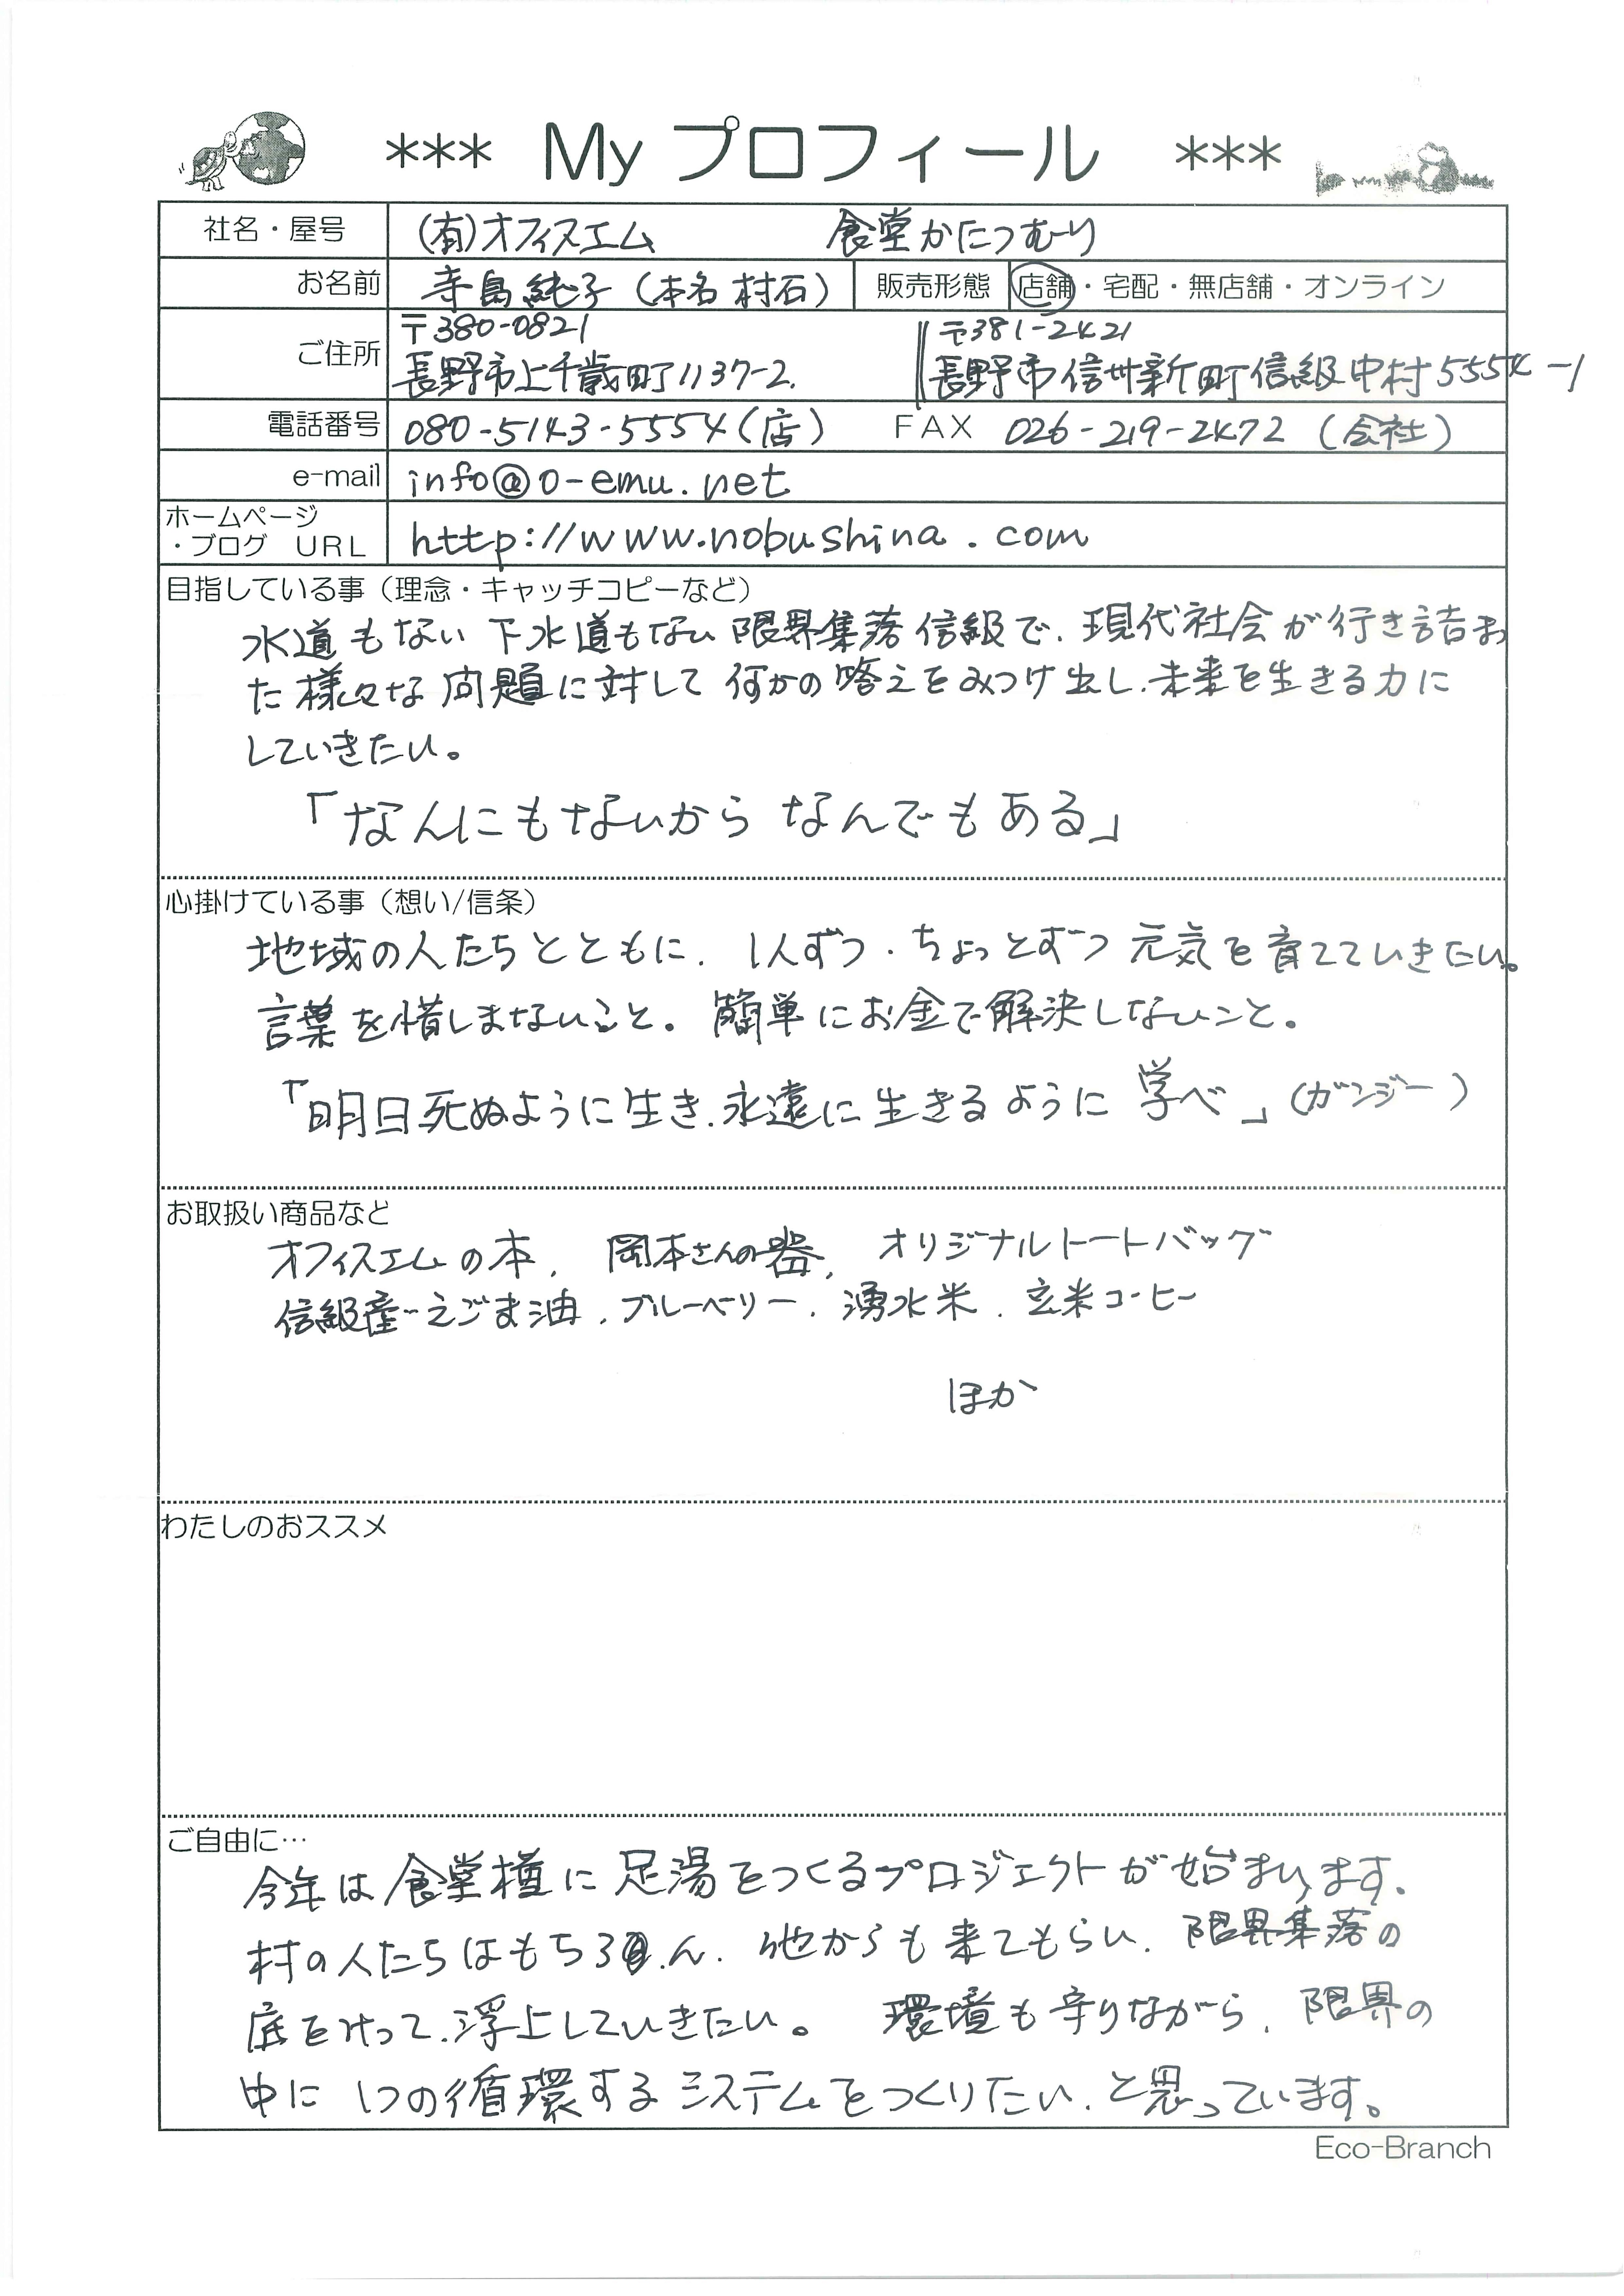 *** My プロフィール ***
社名・屋号 (有)オフィスエム 食堂かたつむり
お名前 寺島純子(本名 村石) 販売形態 店舗・宅配・無店舗・オンライン
ご住所 〒380-0821 〒381-2421
長野市上千歳町1137-2. 長野市信州新町信級中村5554-1
電話番号 080-5143-5554(店) FAX 026-219-2472 (会社)
e-mail info@o-emu.net
ホームページ
・ブログ URL http://www.nobushina.com
目指している事(理念・キャッチコピーなど)
水道もない 下水道もない 限界集落 信級で、現代社会が行き詰まっ
た様々な問題に対して何かの答えをみつけ出し、未来を生きる力に
していきたい。
「なんにもないから なんでもある」
心掛けている事(想い/信条)
地域の人たちとともに、1人ずつ・ちょっとずつ 元気を育てていきたい。
言葉を惜しまないこと。簡単にお金で解決しないこと。
「明日死ぬように生き、永遠に生きるように学べ」(ガンジー)
お取扱い商品など
オフィスエムの本、岡本さんの器、オリジナルトートバッグ
信級産…えごま油、ブルーベリー、湧水米、玄米コーヒー
ほか
わたしのおススメ
ご自由に…
今年は食堂横に足湯をつくるプロジェクトが始まります。
村の人たちはもちろん、他からも来てもらい、限界集落の
底をけって、浮上していきたい。環境も守りながら、限界の
中に1つの循環するシステムをつくりたい、と思っています。
Eco-Branch